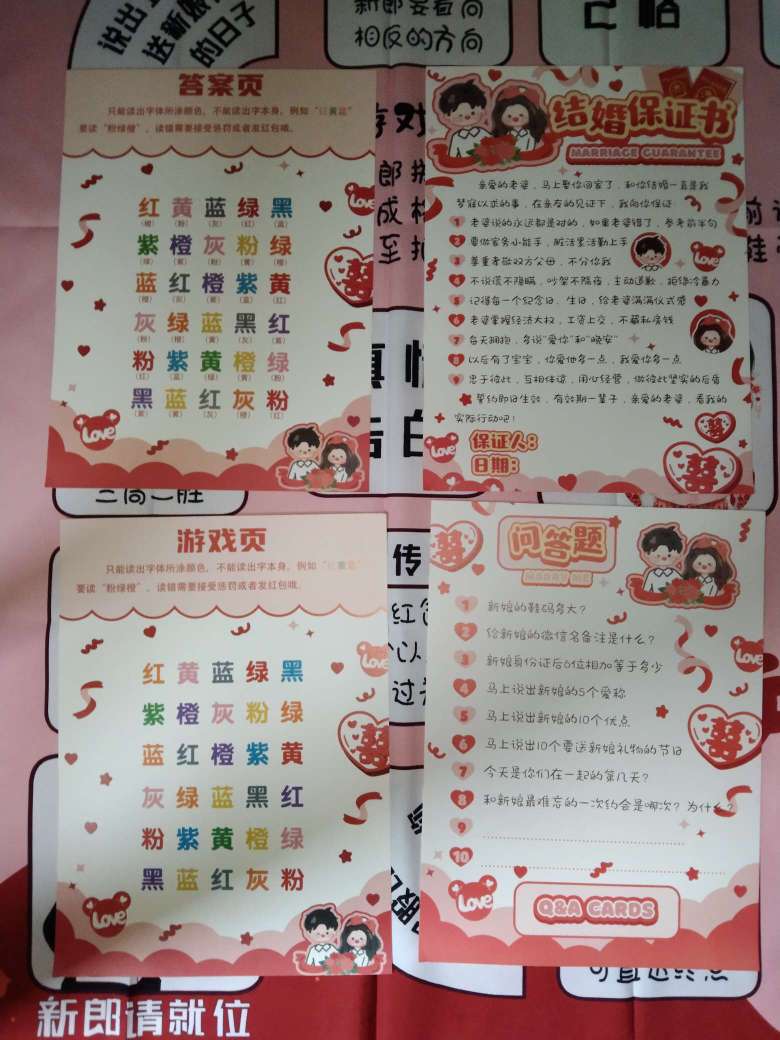 送新娘
的日子
新郎要看向
相反的方向
答案页
只能读出字体所涂颜色，不能读出字本身，例如“红黄蓝”
要读“粉绿橙”，读错需要接受惩罚或者发红包哦。
红 黄 蓝 绿 黑
紫 橙 灰 粉 绿
蓝 红 橙 紫 黄
灰 绿 蓝 黑 红
粉 紫 黄 橙 绿
黑 蓝 红 灰 粉
Love
Love
结婚保证书
MARRIAGE GUARANTEE
亲爱的老婆，马上要娶你回家了，和你结婚一直是我
梦寐以求的事，在亲友的见证下，我向你保证：
1 老婆说的永远都是对的，如果老婆错了，参考前半句
2 要做家务小能手，脏活累活勤上手
3 尊重孝敬双方父母，不分你我
4 不说谎不隐瞒，吵架不隔夜，主动道歉，拒绝冷暴力
5 记得每一个纪念日、生日，给老婆满满仪式感
6 老婆掌握经济大权，工资上交，不藏私房钱
7 每天拥抱，多说“爱你”和“晚安”
8 以后有了宝宝，你爱他多一点，我爱你多一点
9 忠于彼此，互相体谅，用心经营，做彼此坚实的后盾
誓约即日生效，有效期一辈子，亲爱的老婆，看我的
实际行动吧！
保证人：
日期：
Love
Love
囍
囍
三局二胜
游戏页
只能读出字体所涂颜色，不能读出字本身，例如“红黄蓝”
要读“粉绿橙”，读错需要接受惩罚或者发红包哦。
红 黄 蓝 绿 黑
紫 橙 灰 粉 绿
蓝 红 橙 紫 黄
灰 绿 蓝 黑 红
粉 紫 黄 橙 绿
黑 蓝 红 灰 粉
Love
Love
囍
问答题
1 新娘的鞋码多大？
2 给新娘的微信名备注是什么？
3 新娘身份证后6位相加等于多少
4 马上说出新娘的5个爱称
5 马上说出新娘的10个优点
6 马上说出10个要送新娘礼物的节日
7 今天是你们在一起的第几天？
8 和新娘最难忘的一次约会是哪次？为什么？
9
10
Q&A CARDS
Love
Love
囍
囍
可直达终点
新郎请就位